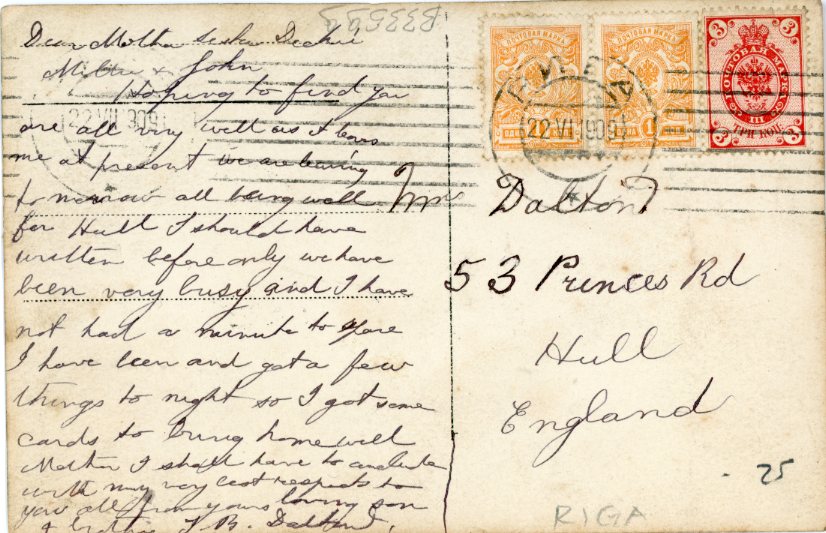 B33554
Dear Mother
& John
Hoping to find you
are all very well as it leaves
me at present we are leaving
tomorrow all being well
for Hull I should have
written before only we have
been very busy and I have
not had a minute to spare
I have been and got a few
things to night so I got some
cards to bring home well
Mother I shall have to conclude
with my very best respects to
you all from yours loving son
& brother J. B. Dalton
Mrs Dalton
53 Princes Rd
Hull
England
25
RIGA
ПОЧТОВАЯ МАРКА
ПОЧТОВАЯ МАРКА
1
3
3
ПОЧТОВАЯ МАРКА
III
ТРИ КОП.
3
3
РИГА
22 VII 909
22 VII 909